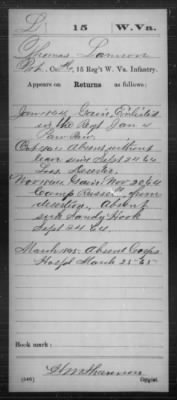 L | 15 | W. Va.
Thomas Lannon
Pvt., Co. H, 15 Reg't W. Va. Infantry.
Appears on Returns as follows:
Jan 1864 Gain Enlisted
in the Regt Jan 4
Paw Paw.
Oct 1864 Absent without
leave since Sept 24 64
Loss Deserter.
Nov 1864 Gain Nov 20 64
Camp Russell from
desertion, Absent
sick Sandy Hook
Sept 24 64.
March 1865 Absent Corps
Hospl March 25 65
Book mark:
(546)
Copyist.